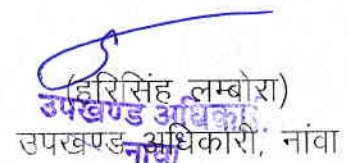 (हरिसिंह लम्बोरा)
उपखण्ड अधिकारी
उपखण्ड अधिकारी, नांवा
नांवा